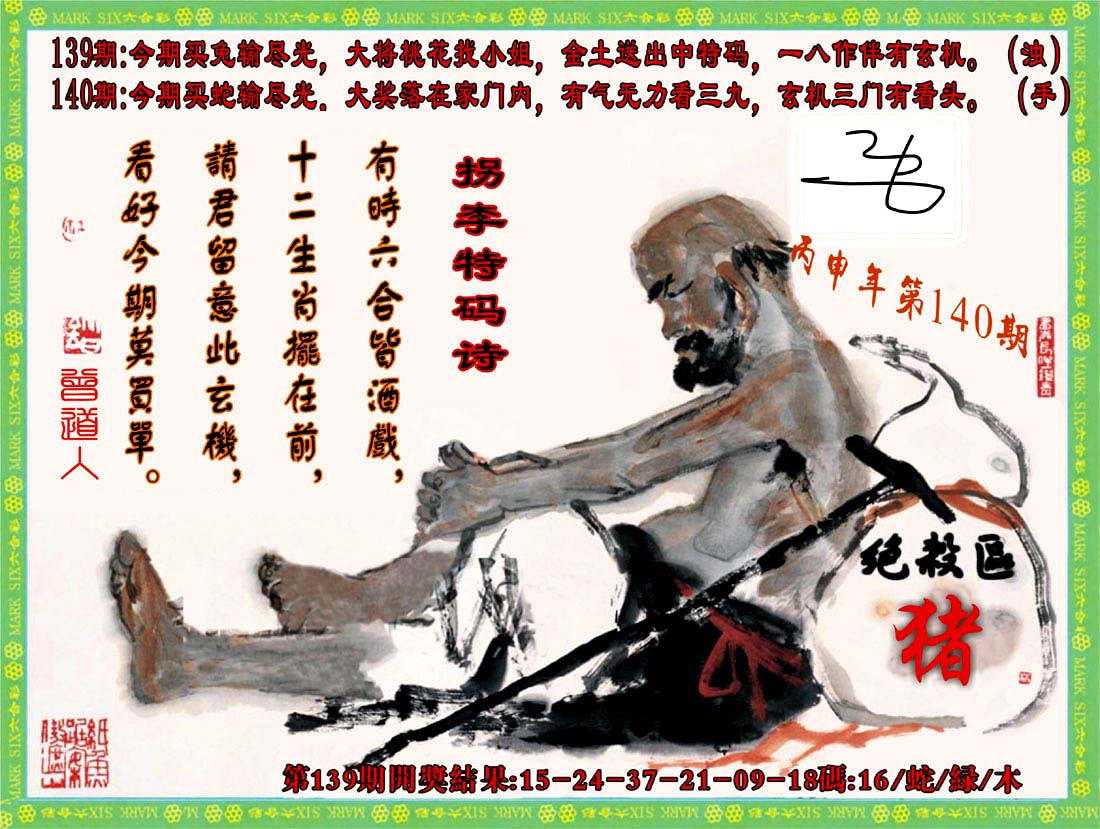 MARK SIX六合彩
139期:今期买兔输尽光，大将桃花找小姐，金土送出中特码，一八作伴有玄机。（浊）
140期:今期买蛇输尽光．大奖落在家门内，有气无力看三九，玄机三门有看头。（手）
拐李特码诗
有時六合皆酒戲，
十二生肖擺在前，
請君留意此玄機，
看好今期莫買單。
曾道人
丙申年第140期
绝殺區
猪
第139期開獎結果:15-24-37-21-09-18碼:16/蛇/緑/木